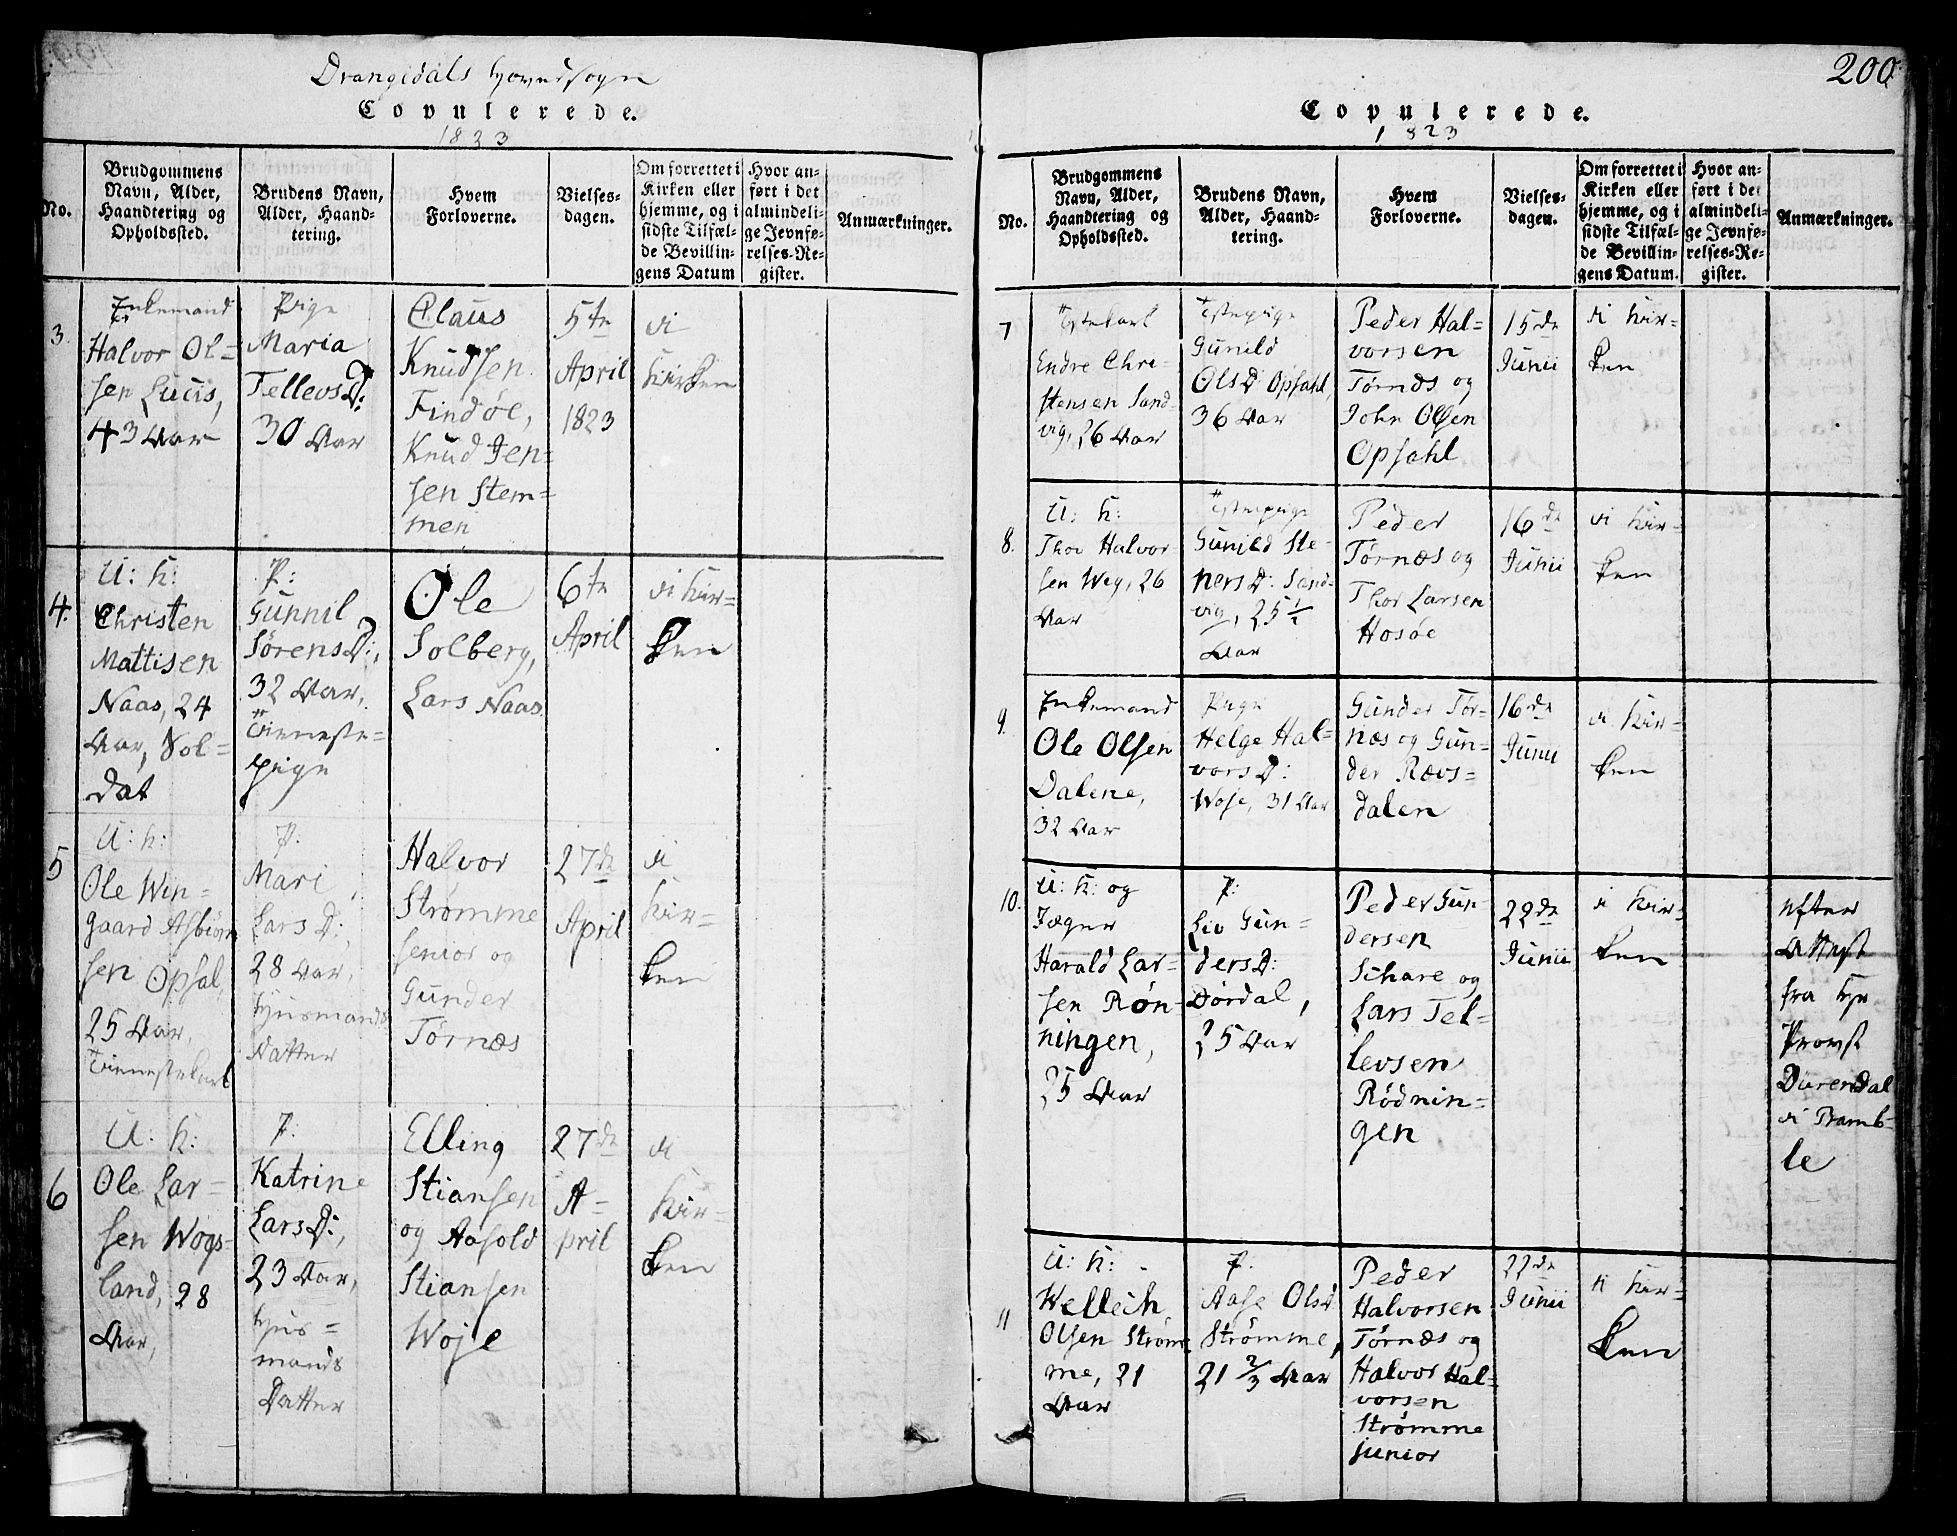 Drangedals Hovedsogn
Copulerede.
1823
No.
Brudgommens
Navn, Alder,
Haandtering og
Opholdssted.
Brudens Navn,
Alder, Haand-
tering.
Hvem
Forloverne.
Vielses-
dagen.
Om forrettet i
Kirken eller
hjemme, og i
sidste Tilfæl-
de Bevillin-
gens Datum
Hvor an-
ført i det
almindeli-
ge Jevnfø-
relses-Re-
gister.
Anmærkninger.
3
Enkemand
Halvor Ol=
sen Lucis,
43 Aar
Pige
Maria
TellevsD:
30 Aar
Claus
Knudsen
Findøe,
Knud Jen=
sen Stem=
men
5te
April
1823
i
Kirken
4.
U: K:
Christen
Mattisen
Naas, 24
Aar, Sol=
dat
P:
Gunnil
SørensD:,
32 Aar,
Tieneste=
pige
Ole
Solberg,
Lars Naas
6te
April
i Kir=
ken
5
U: K:
Ole Win=
gaard Asbiørn
sen Opsal,
25 Aar,
Tienestekarl
P:
Mari
LarsD:,
28 Aar,
Husmands
Datter
Halvor
Strømme
senior og
Gunder
Tørnæs
27de
April
i
Kir=
ken
6
U: K:
Ole Lar=
sen Wogs=
land, 28
Aar,
P:
Katrine
LarsD:,
23 Aar,
Hus=
mands
Datter
Elling
Stiansen
og Aasold
Stiansen
Woje
27de
A=
pril
i
Kir=
ken
200
Copulerede.
1823
No.
Brudgommens
Navn, Alder,
Haandtering og
Opholdssted.
Brudens Navn,
Alder, Haand-
tering.
Hvem
Forloverne.
Vielses-
dagen.
Om forrettet i
Kirken eller
hjemme, og i
sidste Tilfæl-
de Bevillin-
gens Datum.
Hvor an-
ført i det
almindeli-
ge Jevnfø-
relses-Re-
gister.
Anmærkninger.
7
Endre Chri=
stensen Sand
vig, 26 Aar
Gunild
OlsD Opsahl,
36 Aar
Peder Hal=
vorsen
Tørnæs og
John Olsen
Opsahl
15de
Junii
i Kir=
ken
8.
U: K:
Thor Halvor
sen Weg, 26
Aar
Gunild Ste=
nersD: Sand=
vig, 25½
Aar
Peder
Tørnæs og
Thor Larsen
Hosøe
16de
Junii
i Kir=
ken
9.
Enkemand
Ole Olsen
Dalene,
32 Aar
Pige
Helge Hal=
vorsD:
Woje, 31 Aar
Gunder Tør=
næs og Gun=
der Rævs=
dalen
16de
Junii
i Kir=
ken
10.
U: K: og
Jæger
Harald Lar=
sen Røn=
ningen,
25 Aar
P:
Liv Gun=
dersD:
Dørdal,
25 Aar
Peder Gun
dersen
Schare og
Lars Tel=
levsen
Rødnin=
gen
22de
Junii
i Kir=
ken
efter
Attest
fra Hr
Provst
Durendal
i Bamb=
le
11
U: K:
Wellech
Olsen Strøm
me, 21
Aar
P:
Aase OlsD
Strømme,
21 2/3 Aar
Peder
Halvorsen
Tørnæs og
Halvor Hal=
vorsen
Strømme
junior
22de
Junii
i Kir=
ken